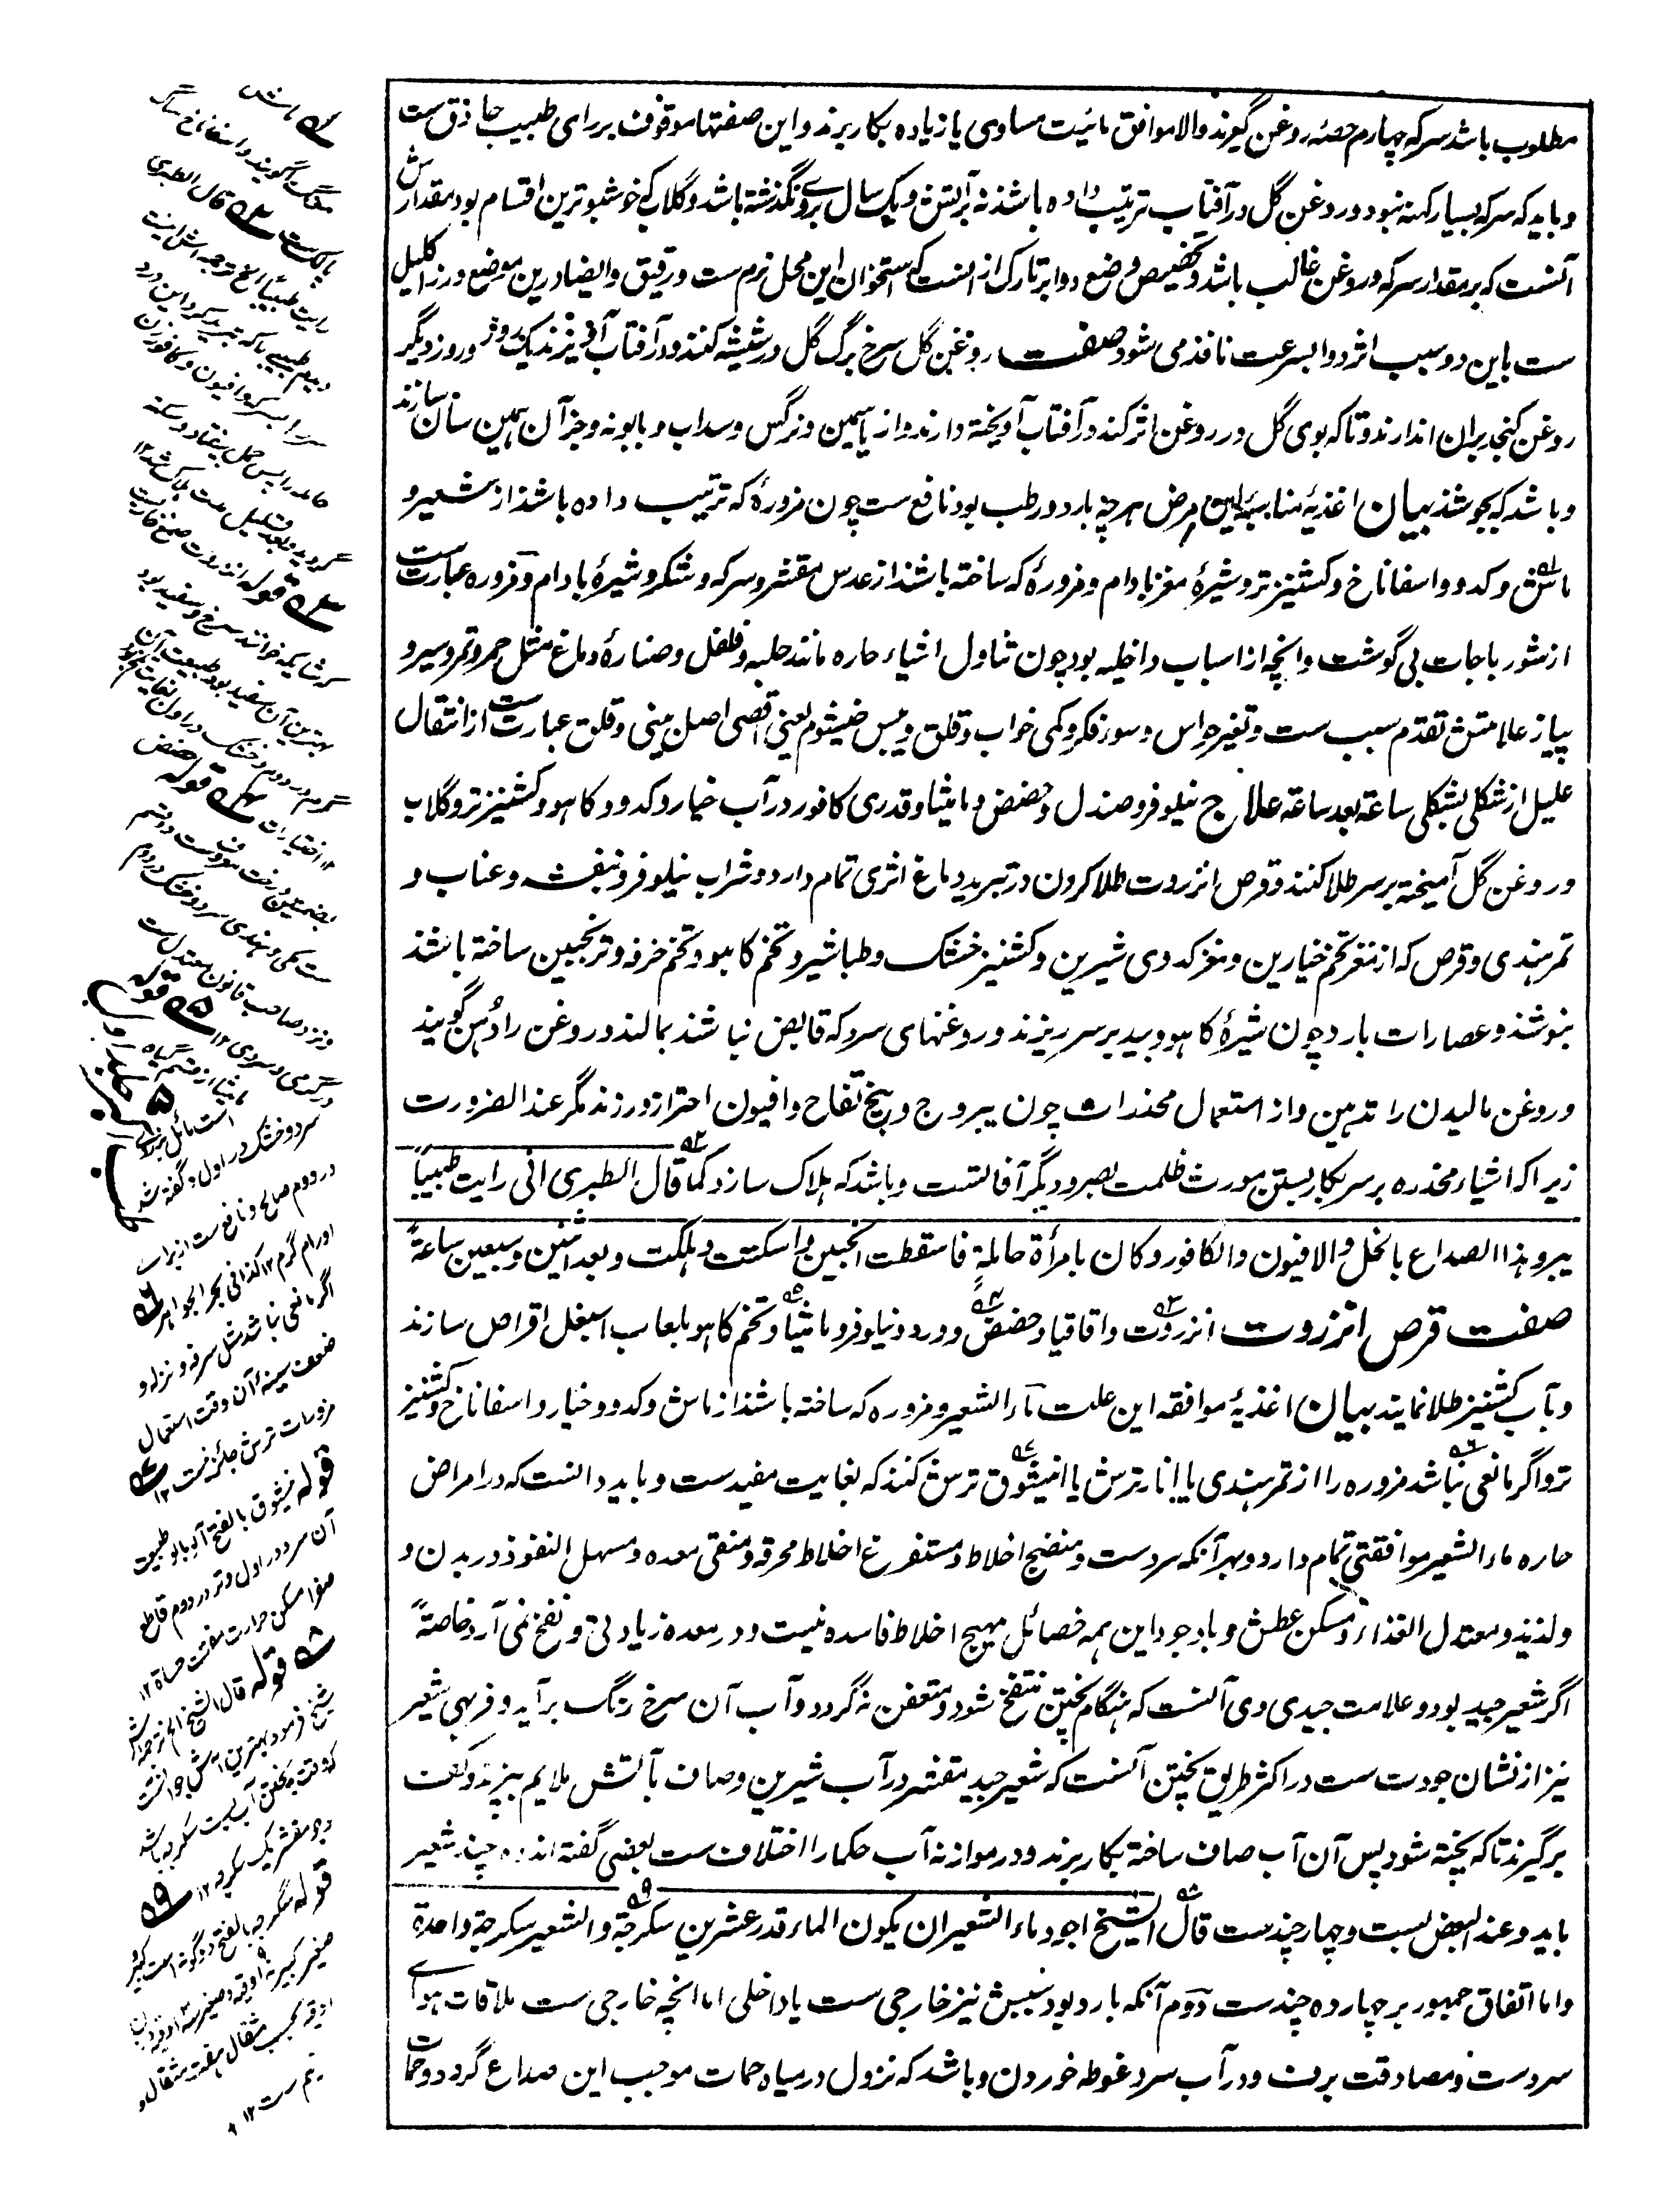 مطلوب باشد سرکه چهارم حصهٔ روغن گیرند والا موافق مائیت مساوی یا زیاده بکار برند و این صفتها موقوف بر رای طبیب حاذق ست
و باید که سرکه بسیار کهنه نبود و روغن گل در آفتاب ترتیب داده باشد نه بر آتش و یک سال بروی نگذشته باشد و گلاب که خوشبوترین اقسام بود مقدارش
آنست که بر مقدار سرکه و روغن غالب باشد و تخصیص وضع دوا بر تارک از آنست که استخوان این محل نرم ست و رقیق و ایضا درین موضع درز اکلیل
ست باین دو سبب اثر دوا بسرعت نافذ می شود صفت روغن گل سرخ برگ گل در شیشه کنند و در آفتاب آویزند یک روز و روز دیگر
روغن کنجد بران اندازند و تا که بوی گل در روغن اثر کند در آفتاب آویخته دارند و از یاسمین و نرگس و سداب و بابونه و جز آن همین سان سازند
و باشد که بجوشند بیان اغذیهٔ مناسبهٔ این مرض هر چه بارد و رطب بود نافع ست چون مزورهٔ که ترتیب داده باشند از شعیر و
ماش و کدو و اسفاناخ و کشنیز تر و شیرهٔ مغز بادام و مزورهٔ که ساخته باشند از عدس مقشر و سرکه و شکر و شیرهٔ بادام و مزوره عبارت ست
از شورباجات بی گوشت و انچه از اسباب داخلیه بود چون تناول اشیاء حاره مانند حلبه و فلفل و ضارهٔ دماغ مثل خمر و تمر و سیر و
پیاز علامتش تقدم سبب ست و تغیر حواس و سوء فکر و کمی خواب و قلق و یبس خیشوم یعنی اقصی اصل بینی و قلق عبارت ست از انتقال
علیل از شکلی بشکلی ساعة بعد ساعة علاج نیلوفر و صندل و حضض و مامیثا و قدری کافور در آب خیار و کدو و کاهو و کشنیز تر و گلاب
و روغن گل آمیخته بر سر طلا کنند و قرص انزروت طلا کردن در تبرید دماغ اثری تمام دارد و شراب نیلوفر و بنفشه و عناب و
تمر هندی و قرص که از مغز تخم خیارین و مغز کدوی شیرین و کشنیز خشک و طباشیر و تخم کاهو و تخم خرفه و ترنجبین ساخته باشند
بنوشند و عصارات بارد چون شیرهٔ کاهو و بید بر سر ریزند و روغنهای سرد که قابض نباشد بمالند و روغن را دُهن گویند
و روغن مالیدن را تدهین و از استعمال مخدرات چون یبروج و بیخ تفاح و افیون احتراز ورزند مگر عند الضرورت
زیرا که اشیاء مخدره بر سر بکار بستن مورث ظلمت بصر و دیگر آفاتست و باشد که هلاک سازد کما قال الطبری انی رایت طبیباً
یبرد هذا الصداع بالخل والافیون والکافور و کان بامرأة حاملة فاسقطت الجنین و اسکتت و هلکت و بعد اثنین و سبعین ساعةً
صفت قرص انزروت انزروت و اقاقیا و حضض و ورد و نیلوفر و مامیثا و تخم کاهو بلعاب اسبغل اقراص سازند
و بآب کشنیز طلا نمایند بیان اغذیهٔ موافقه این علت ماء الشعیر و مزوره که ساخته باشند از ماش و کدو و خیار و اسفاناخ و کشنیز
تر و اگر مانعی نباشد مزوره را از تمر هندی یا انار ترش یا نیشوق ترش کنند که بغایت مفیدست و باید دانست که در امراض
حاره ماء الشعیر موافقتی تمام دارد و بهر آنکه سردست و منضج اخلاط و مستفرغ اخلاط محرقه و منقی معده و مسهل النفوذ در بدن و
و لذیذ و معتدل الغذاء و مسکن عطش و باوجود این همه خصائل مهیج اخلاط فاسده نیست و در معده زیادتی و نفخ نمی آرد خاصةً
اگر شعیر جید بود و علامت جیدی وی آنست که هنگام پختن منتفخ شود و متعفن نگردد و آب آن سرخ رنگ برآید و فربهی شعیر
نیز از نشان جودت ست در اکثر طریق پختن آنست که شعیر جید مقشر در آب شیرین و صاف بآتش ملایم بپزند و کف
برگیرند تا که پخته شود پس آن آب صاف ساخته بکار برند و در موازنهٔ آب حکما را اختلاف ست بعضی گفته اند ده چند شعیر
باید و عند البعض بست و چهار چندست قال الشیخ اجود ماء الشعیر ان یکون الماء قدر عشرین سکرجة و الشعیر سکرجة واحدة
و اما اتفاق جمهور بر چهارده چندست دوم آنکه بارد بود سببش نیز خارجی ست یا داخلی اما انچه خارجی ست ملاقات هوای
سردست و مصادفت برف و در آب سرد غوطه خوردن و باشد که نزول در میاه حمات موجب این صداع گردد و حمات
قال الطبری
رایت طبیباً الخ ترجمه اش اینست
قوله انزروت
بهترین آن سفید بود
قوله حضض
سرد و خشک در اول و گفته شد
در دوم صالح و نافع ست از برای
اورام گرم ۱۲ کذا فی بحر الجواهر
اگر مانعی نباشد مثل سرفه و نزله و
ضعف سینه آن وقت استعمال
مزورات ترش جائز نیست ۱۲
قوله نیشوق بالفتح آلو بالو طبیعت
آن سرد در اول و تر در دوم قاطع
صفرا مسکن حرارت مفتت حصاة ۱۲
قوله قال الشیخ الخ ترجمه اش
شیخ فرمود بهترین آش جو آنست
که وقت پختن آب بست سکرجه باشد
و جو مقشر یک سکرجه ۱۲
قوله سکرجه بالفتح دو گونه است کبیر و
صغیر کبیر نه اوقیه و صغیر سه اوقیه و
اوقیه بحسب مثقال هفت مثقال و
نیم ست ۱۲